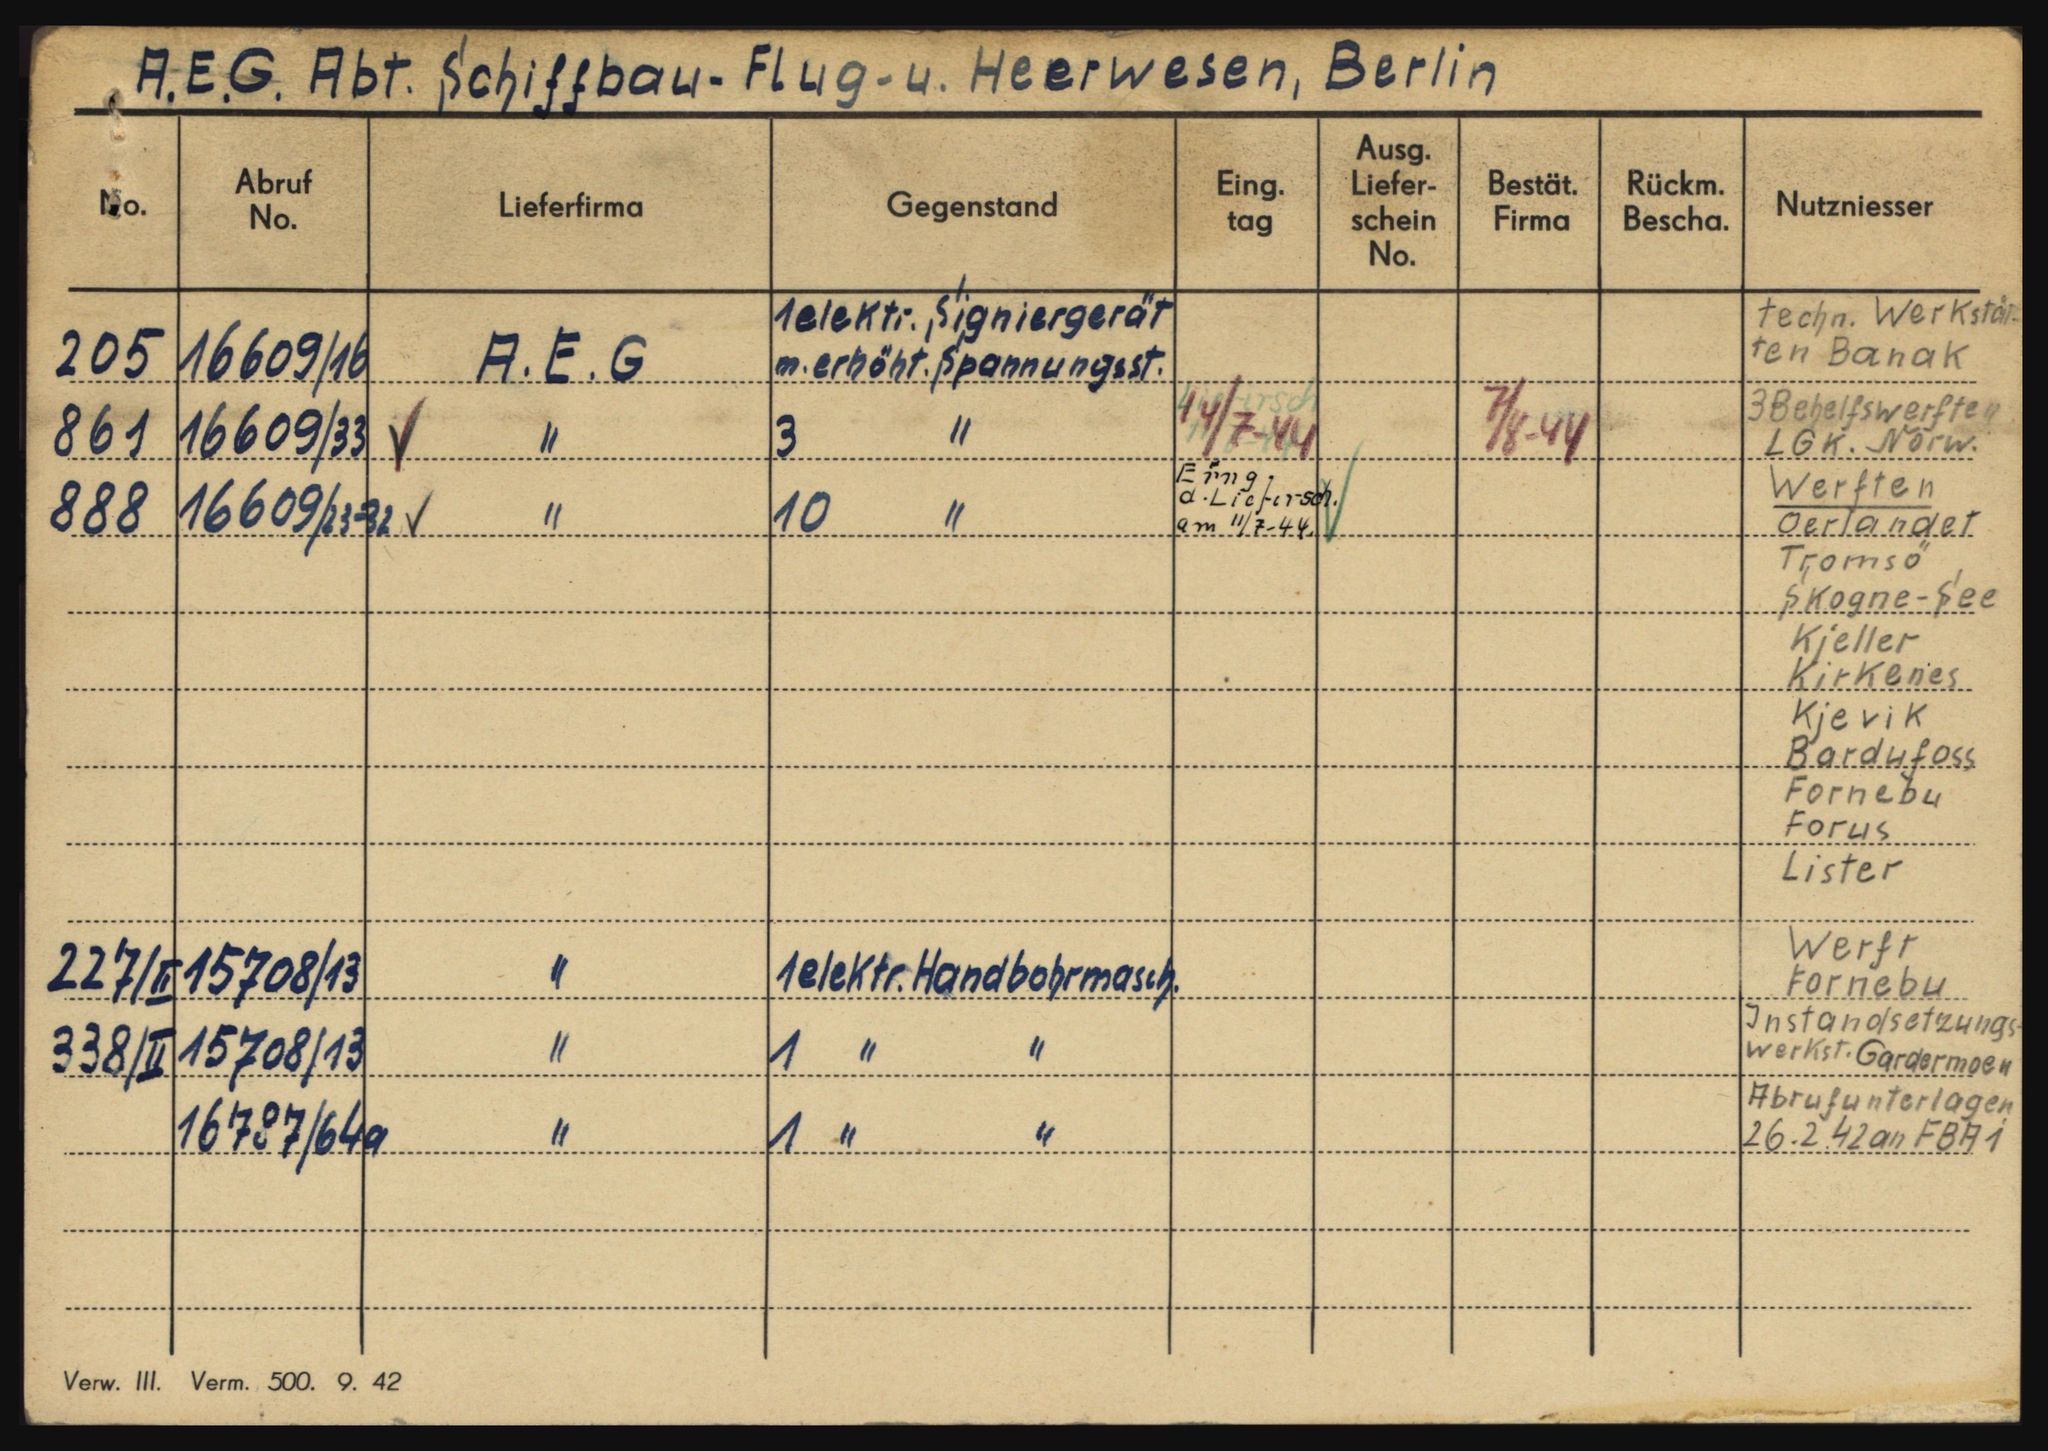 A.E.G. Abt. Schiffbau- Flug- u. Heerwesen, Berlin
No.
Abruf
No.
Lieferfirma
Gegenstand
Eing.
tag
Ausg.
Liefer-
schein
No.
Bestät.
Firma
Rückm.
Bescha.
Nutzniesser
205 16609/16 A.E.G
1 elektr. Signiergerät
m. erhöht. Spannungsst.
techn. Werkstät-
ten Banak
861 16609/33 √ " 3 "
/7-44
7/8-44
3 Behelfswerften
LGK. Norw.
888 16609/23-32 √ " 10 "
Eing.
d. Liefersch.
am 11/7-44.
√
Werften
Oerlandet
Tromsö
Skogne-See
Kjeller
Kirkenes
Kjevik
Bardufoss
Fornebu
Forus
Lister
227/II 15708/13 " 1 elektr. Handbohrmasch.
Werft
Fornebu
338/II 15708/13 " 1 " "
Instandsetzungs-
werkst. Gardermoen
16787/64a " 1 " "
Abrufunterlagen
26.2.42 an FBA 1
Verw. III. Verm. 500. 9. 42